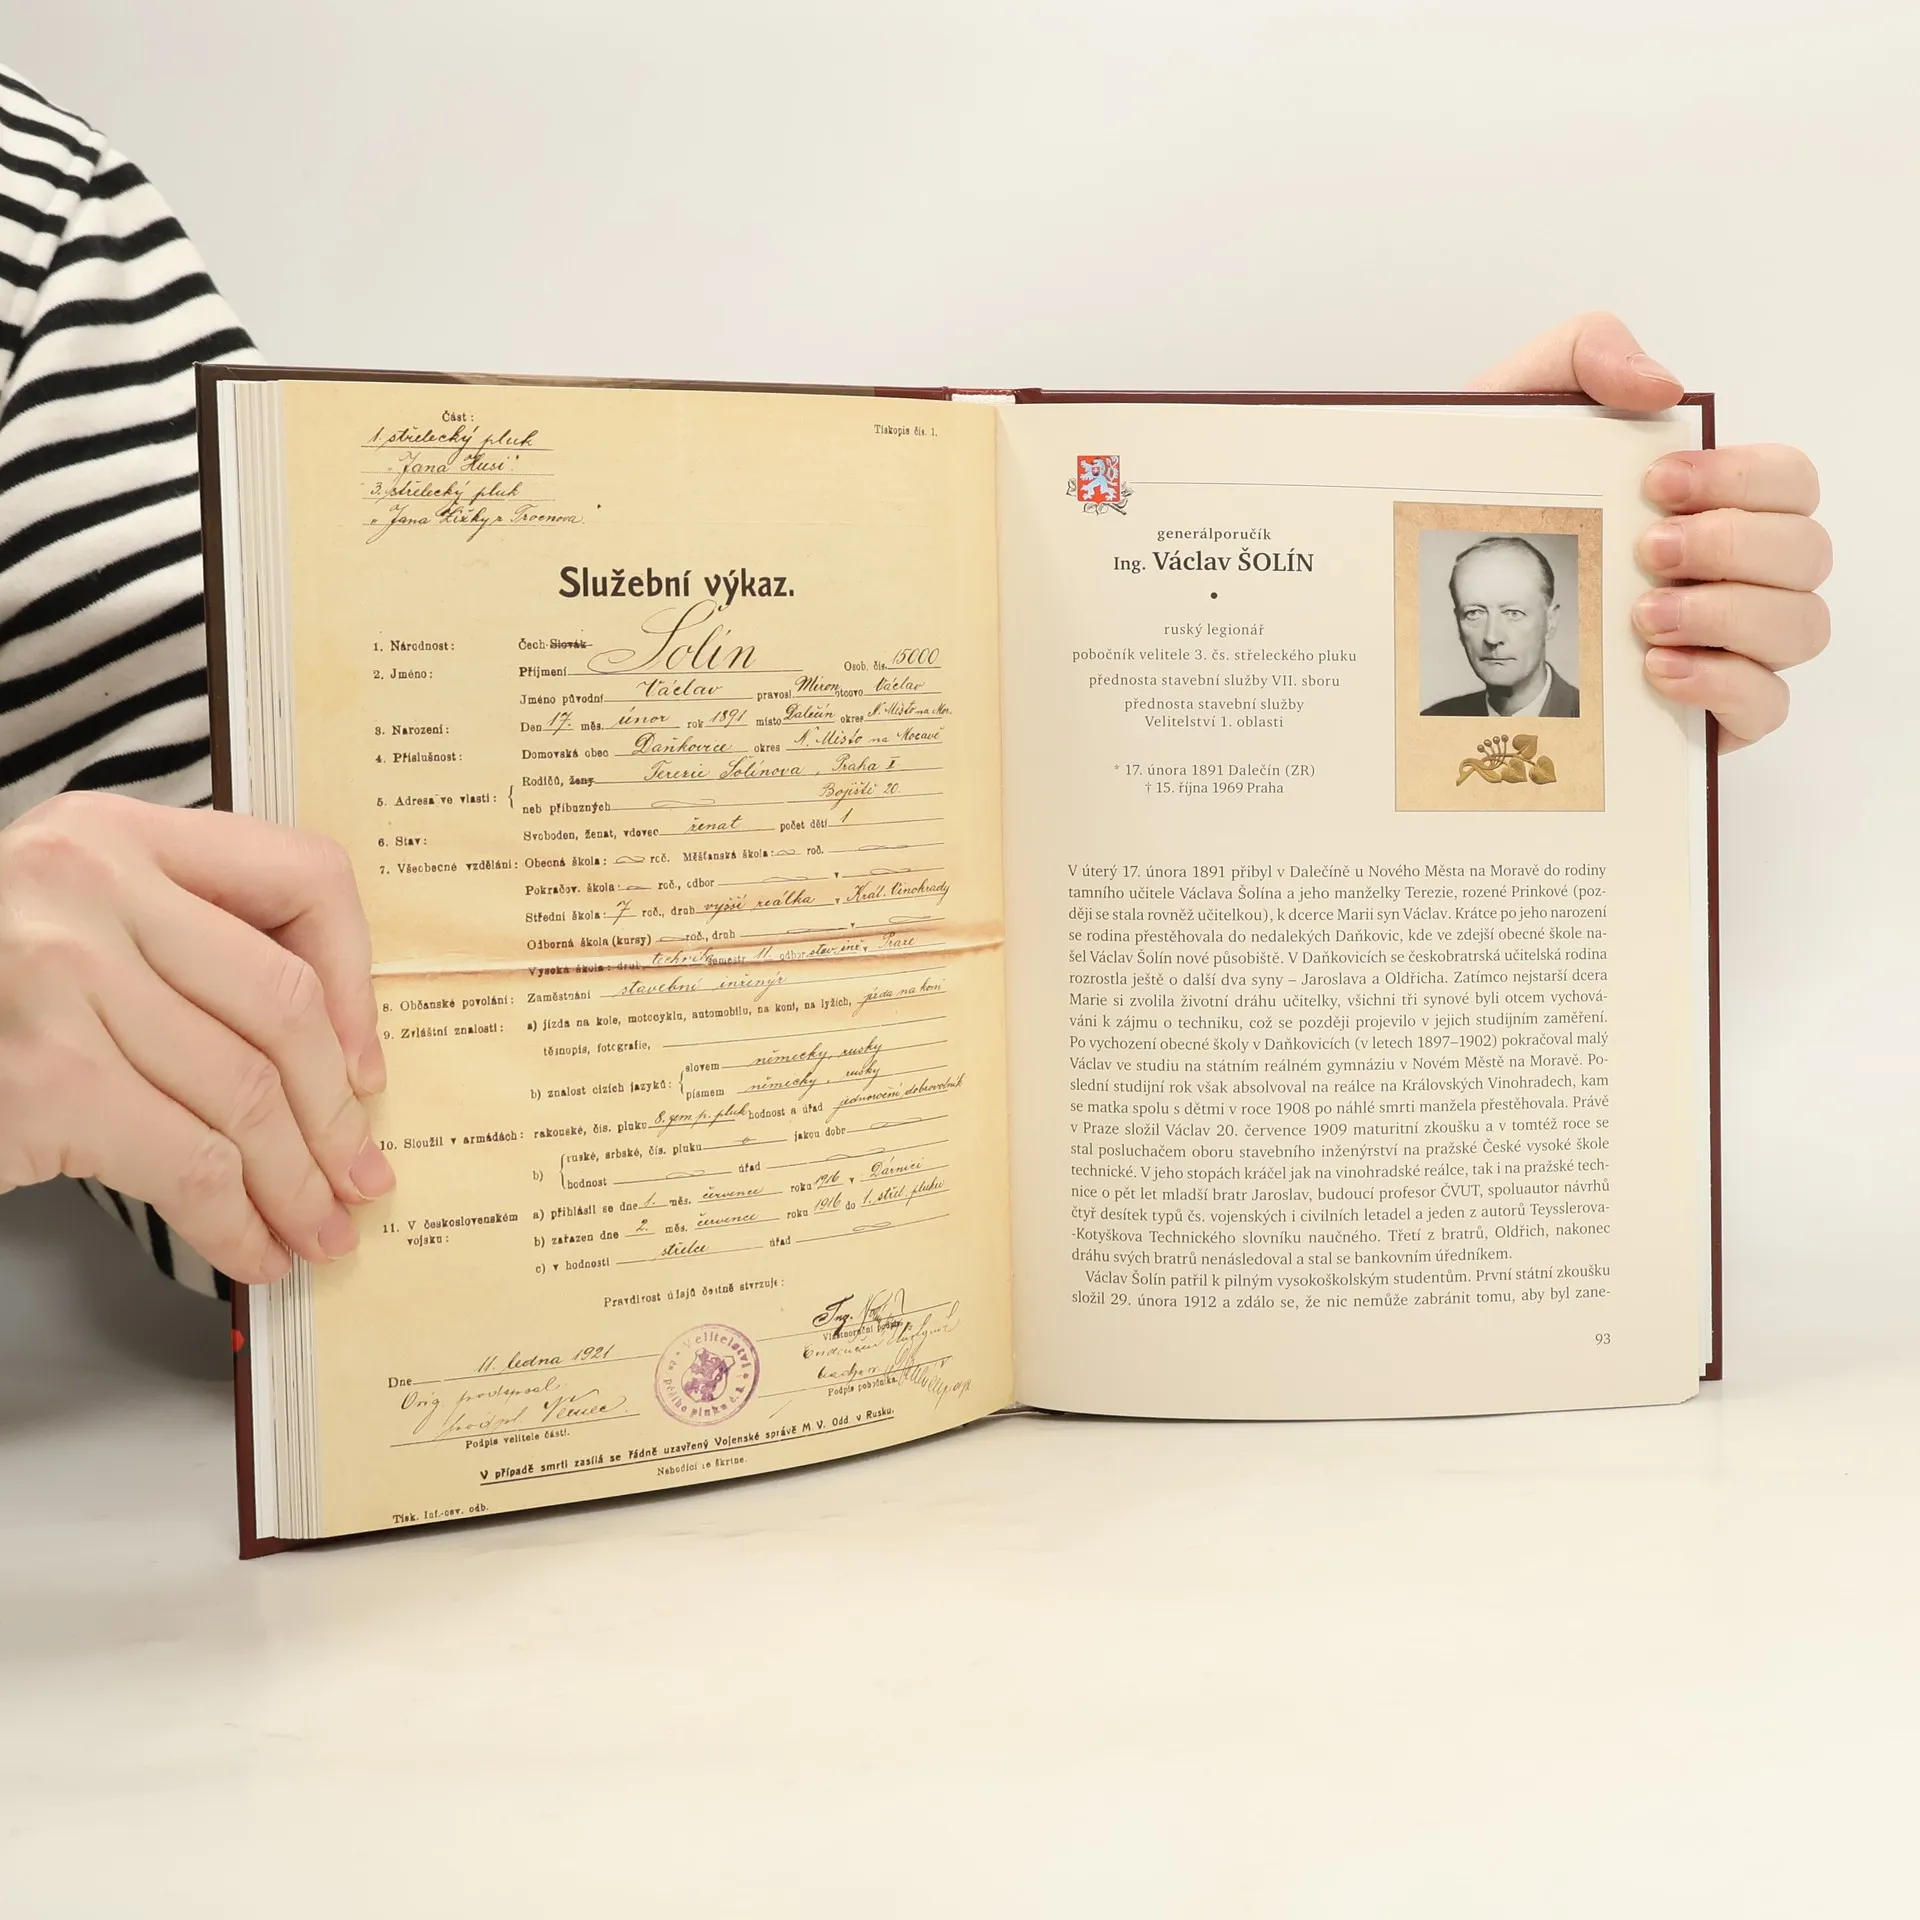 Část:
1. střelecký pluk
"Jana Husi".
3. střelecký pluk
"Jana Žižky z Trocnova."
Tiskopis čís. 1.
Služební výkaz.
1. Národnost: Čech-Slovák
2. Jméno: Příjmení Šolín Osob. čís. 15000
Jméno původní Václav pravosl. Miron otcovo Václav
3. Narození: Den 17. měs. únor rok 1891 místo Dalečín okres N. Město na Mor.
4. Příslušnost: Domovská obec Daňkovice okres N. Město na Moravě
5. Adresa ve vlasti: { Rodičů, ženy Terezie Šolínova, Praha I.
neb příbuzných Bojiští 20.
6. Stav: Svoboden, ženat, vdovec ženat počet dětí 1
7. Všeobecné vzdělání: Obecná škola: roč. Měšťanská škola: roč.
Pokračov. škola: roč., odbor v
Střední škola: 7 roč., druh vyšší reálka v Král. Vinohrady
Odborná škola (kursy) roč., druh v
Vysoká škola: druh technika semestr 11. odbor stav. inž. v Praze
8. Občanské povolání: Zaměstnání stavební inženýr
9. Zvláštní znalosti: a) jízda na kole, motocyklu, automobilu, na koni, na lyžích, jízda na koni
těsnopis, fotografie,
b) znalost cizích jazyků: { slovem německy, rusky
písmem německy, rusky
10. Sloužil v armádách: rakouské, čís. pluku 8. zem. p. pluk hodnost a úřad jednoroční dobrovolník
b) { ruské, srbské, čís. pluku jakou dobr
hodnost úřad
11. V československém vojsku: a) přihlásil se dne 1. měs. července roku 1916 v Dárnici
b) zařazen dne 2. měs. července roku 1916 do 1. střel. pluku
c) v hodnosti střelce úřad
Pravdivost údajů čestně stvrzuje:
Ing.
Vlastnoruční podpis
Dne 11. ledna 1921
Orig. podepsal:
Podpis velitele části.
Podpis pobočníka
Velitelství
pěšího pluku
V případě smrti zasílá se řádně uzavřený Vojenské správě M. V. Odd. v Rusku.
Nehodící se škrtne.
Tisk. Inf.-osv. odb.
generálporučík
Ing. Václav ŠOLÍN
•
ruský legionář
pobočník velitele 3. čs. střeleckého pluku
přednosta stavební služby VII. sboru
přednosta stavební služby
Velitelství 1. oblasti
* 17. února 1891 Dalečín (ZR)
† 15. října 1969 Praha
V úterý 17. února 1891 přibyl v Dalečíně u Nového Města na Moravě do rodiny
tamního učitele Václava Šolína a jeho manželky Terezie, rozené Prinkové (poz-
ději se stala rovněž učitelkou), k dcerce Marii syn Václav. Krátce po jeho narození
se rodina přestěhovala do nedalekých Daňkovic, kde ve zdejší obecné škole na-
šel Václav Šolín nové působiště. V Daňkovicích se českobratrská učitelská rodina
rozrostla ještě o další dva syny – Jaroslava a Oldřicha. Zatímco nejstarší dcera
Marie si zvolila životní dráhu učitelky, všichni tři synové byli otcem vychová-
váni k zájmu o techniku, což se později projevilo v jejich studijním zaměření.
Po vychození obecné školy v Daňkovicích (v letech 1897–1902) pokračoval malý
Václav ve studiu na státním reálném gymnáziu v Novém Městě na Moravě. Po-
slední studijní rok však absolvoval na reálce na Královských Vinohradech, kam
se matka spolu s dětmi v roce 1908 po náhlé smrti manžela přestěhovala. Právě
v Praze složil Václav 20. července 1909 maturitní zkoušku a v tomtéž roce se
stal posluchačem oboru stavebního inženýrství na pražské České vysoké škole
technické. V jeho stopách kráčel jak na vinohradské reálce, tak i na pražské tech-
nice o pět let mladší bratr Jaroslav, budoucí profesor ČVUT, spoluautor návrhů
čtyř desítek typů čs. vojenských i civilních letadel a jeden z autorů Teysslerova-
-Kotyškova Technického slovníku naučného. Třetí z bratrů, Oldřich, nakonec
dráhu svých bratrů nenásledoval a stal se bankovním úředníkem.
Václav Šolín patřil k pilným vysokoškolským studentům. První státní zkoušku
složil 29. února 1912 a zdálo se, že nic nemůže zabránit tomu, aby byl zane-
93